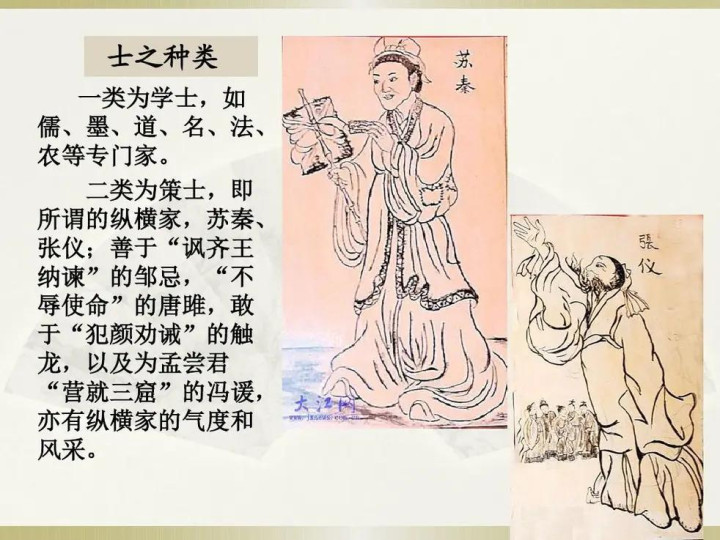 士之种类
一类为学士，如
儒、墨、道、名、法、
农等专门家。
二类为策士，即
所谓的纵横家，苏秦、
张仪；善于“讽齐王
纳谏”的邹忌，“不
辱使命”的唐雎，敢
于“犯颜劝诫”的触
龙，以及为孟尝君
“营就三窟”的冯谖，
亦有纵横家的气度和
风采。
苏秦
大江网
張仪